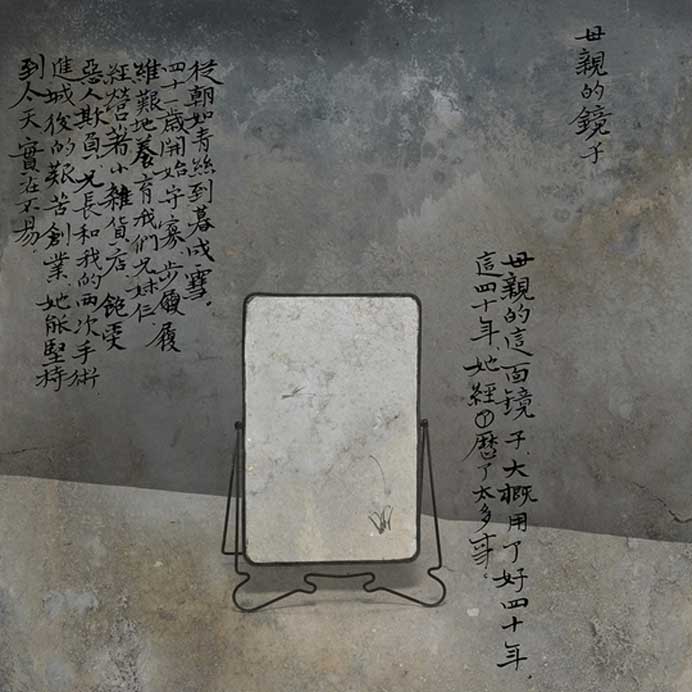 母親的鏡子
母親的這面鏡子.大概用了好四十年.
這四十年.她經歷了太多事.
從朝如青絲到暮成雪.
四十一歲開始守寡.步履
維艱地養育我們兄妹仨.
經營著小雜貨店.飽受
惡人欺負.兄長和我的兩次手術.
進城後的艱苦創業.她能堅持
到今天實在不易.